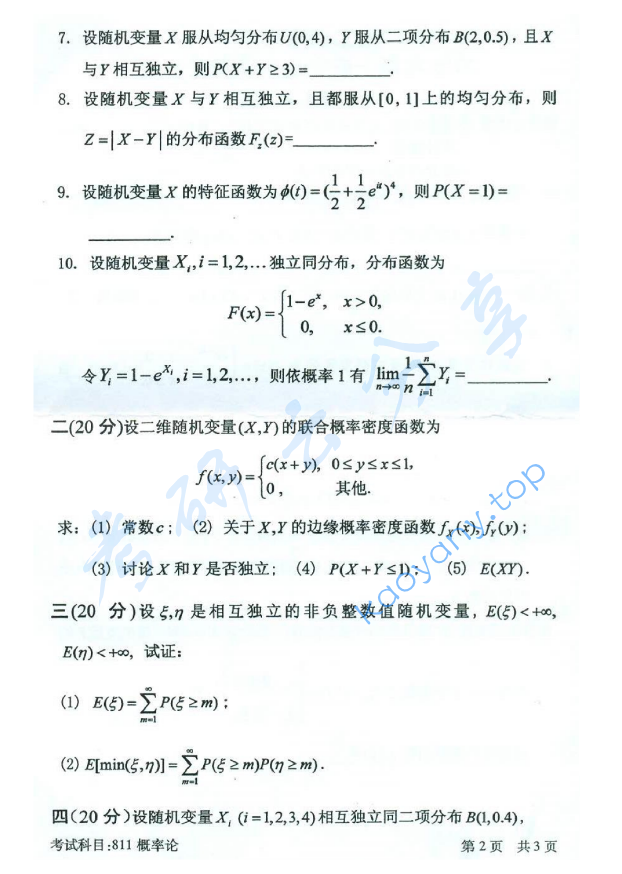 7. 设随机变量 X 服从均匀分布U(0,4)，Y 服从二项分布B(2,0.5)，且X
与Y 相互独立，则P(X+Y≥3)=________.
8. 设随机变量 X 与 Y 相互独立，且都服从[0, 1]上的均匀分布，则
Z=|X−Y|的分布函数F_z(z)=________.
9. 设随机变量 X 的特征函数为ϕ(t)=(1/2+1/2e^{it})^4，则P(X=1)=
________.
10. 设随机变量X_i,i=1,2,...独立同分布，分布函数为
F(x)={1−e^x, x>0,
0, x≤0.
令Y_i=1−e^{X_i},i=1,2,...，则依概率 1 有 lim_{n→∞} 1/n ∑_{i=1}^{n} Y_i=________.
二(20 分)设二维随机变量(X,Y)的联合概率密度函数为
f(x,y)={c(x+y), 0≤y≤x≤1,
0, 其他.
求：(1) 常数c； (2) 关于X,Y的边缘概率密度函数f_X(x),f_Y(y)；
(3) 讨论X和Y是否独立； (4) P(X+Y≤1)； (5) E(XY).
三(20 分)设ξ,η是相互独立的非负整数值随机变量，E(ξ)<+∞,
E(η)<+∞, 试证：
(1) E(ξ)=∑_{m=1}^{∞}P(ξ≥m)；
(2) E[min(ξ,η)]=∑_{m=1}^{∞}P(ξ≥m)P(η≥m).
四(20 分)设随机变量X_i (i=1,2,3,4)相互独立同二项分布B(1,0.4),
考试科目:811 概率论 第 2 页 共 3 页
考研云分享
kaoyany.top